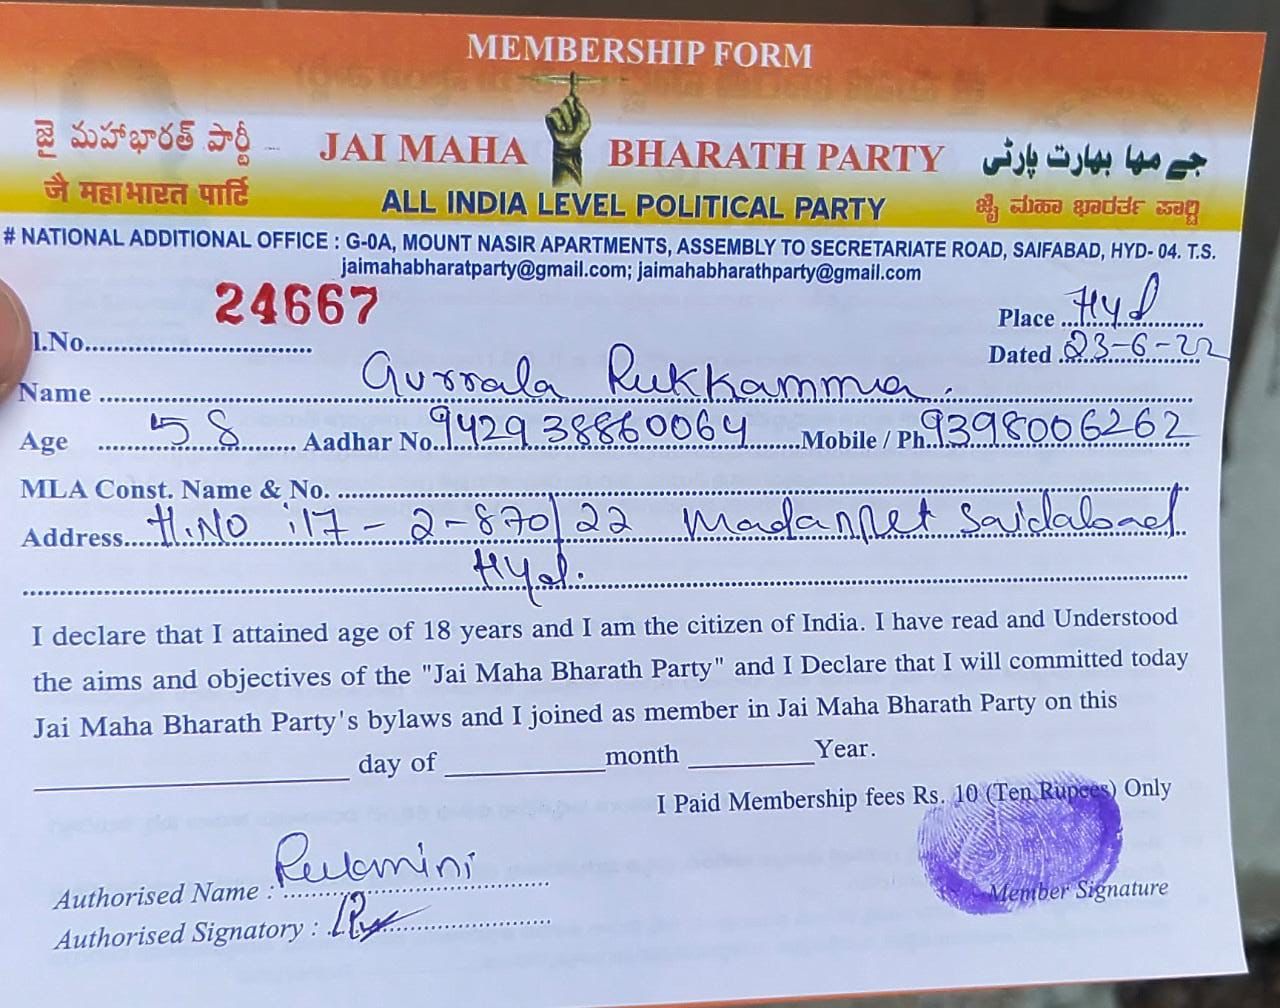 MEMBERSHIP FORM
జై మహాభారత్ పార్టీ
जै महाभारत पार्टि
JAI MAHA BHARATH PARTY
ALL INDIA LEVEL POLITICAL PARTY
جے مہا بھارت پارٹی
ಜೈ ಮಹಾ ಭಾರರ್ತ ಪಾರ್ಟಿ
# NATIONAL ADDITIONAL OFFICE : G-0A, MOUNT NASIR APARTMENTS, ASSEMBLY TO SECRETARIATE ROAD, SAIFABAD, HYD- 04. T.S.
jaimahabharatparty@gmail.com; jaimahabharathparty@gmail.com
24667
l.No.
Place Hyd
Dated 23-6-22
Name Gurrala Rukkamma.
Age 58 Aadhar No. 942938860064 Mobile / Ph. 9398006262
MLA Const. Name & No.
Address H.NO :17-2-870/22 Madannet Saidabad
Hyd.
I declare that I attained age of 18 years and I am the citizen of India. I have read and Understood
the aims and objectives of the "Jai Maha Bharath Party" and I Declare that I will committed today
Jai Maha Bharath Party's bylaws and I joined as member in Jai Maha Bharath Party on this
day of month Year.
I Paid Membership fees Rs. 10 (Ten Rupees) Only
Authorised Name :
Authorised Signatory :
Member Signature